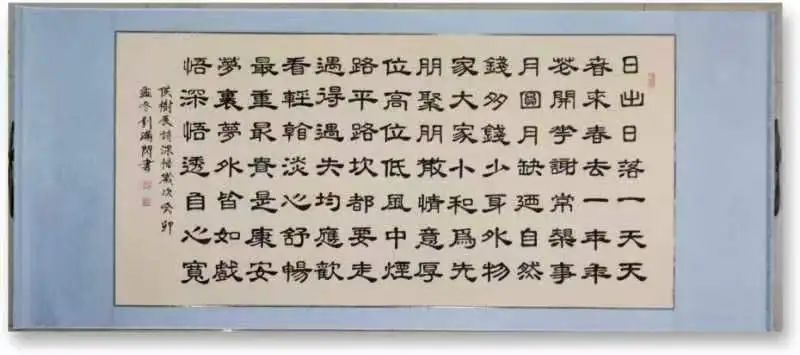 日出日落一天天
春來春去一年年
花開花謝常事
月圓月缺廼自然
錢多錢少身外物
家大家小和爲先
朋聚朋散情意厚
位高位低風中煙
路平路坎都要走
遇得遇失均應歡
看輕看淡心舒暢
最重最貴是康安
夢裏夢外皆如戲
悟深悟透自心寬
侯樹展詩深悟歲次癸卯
孟冬劉滿書